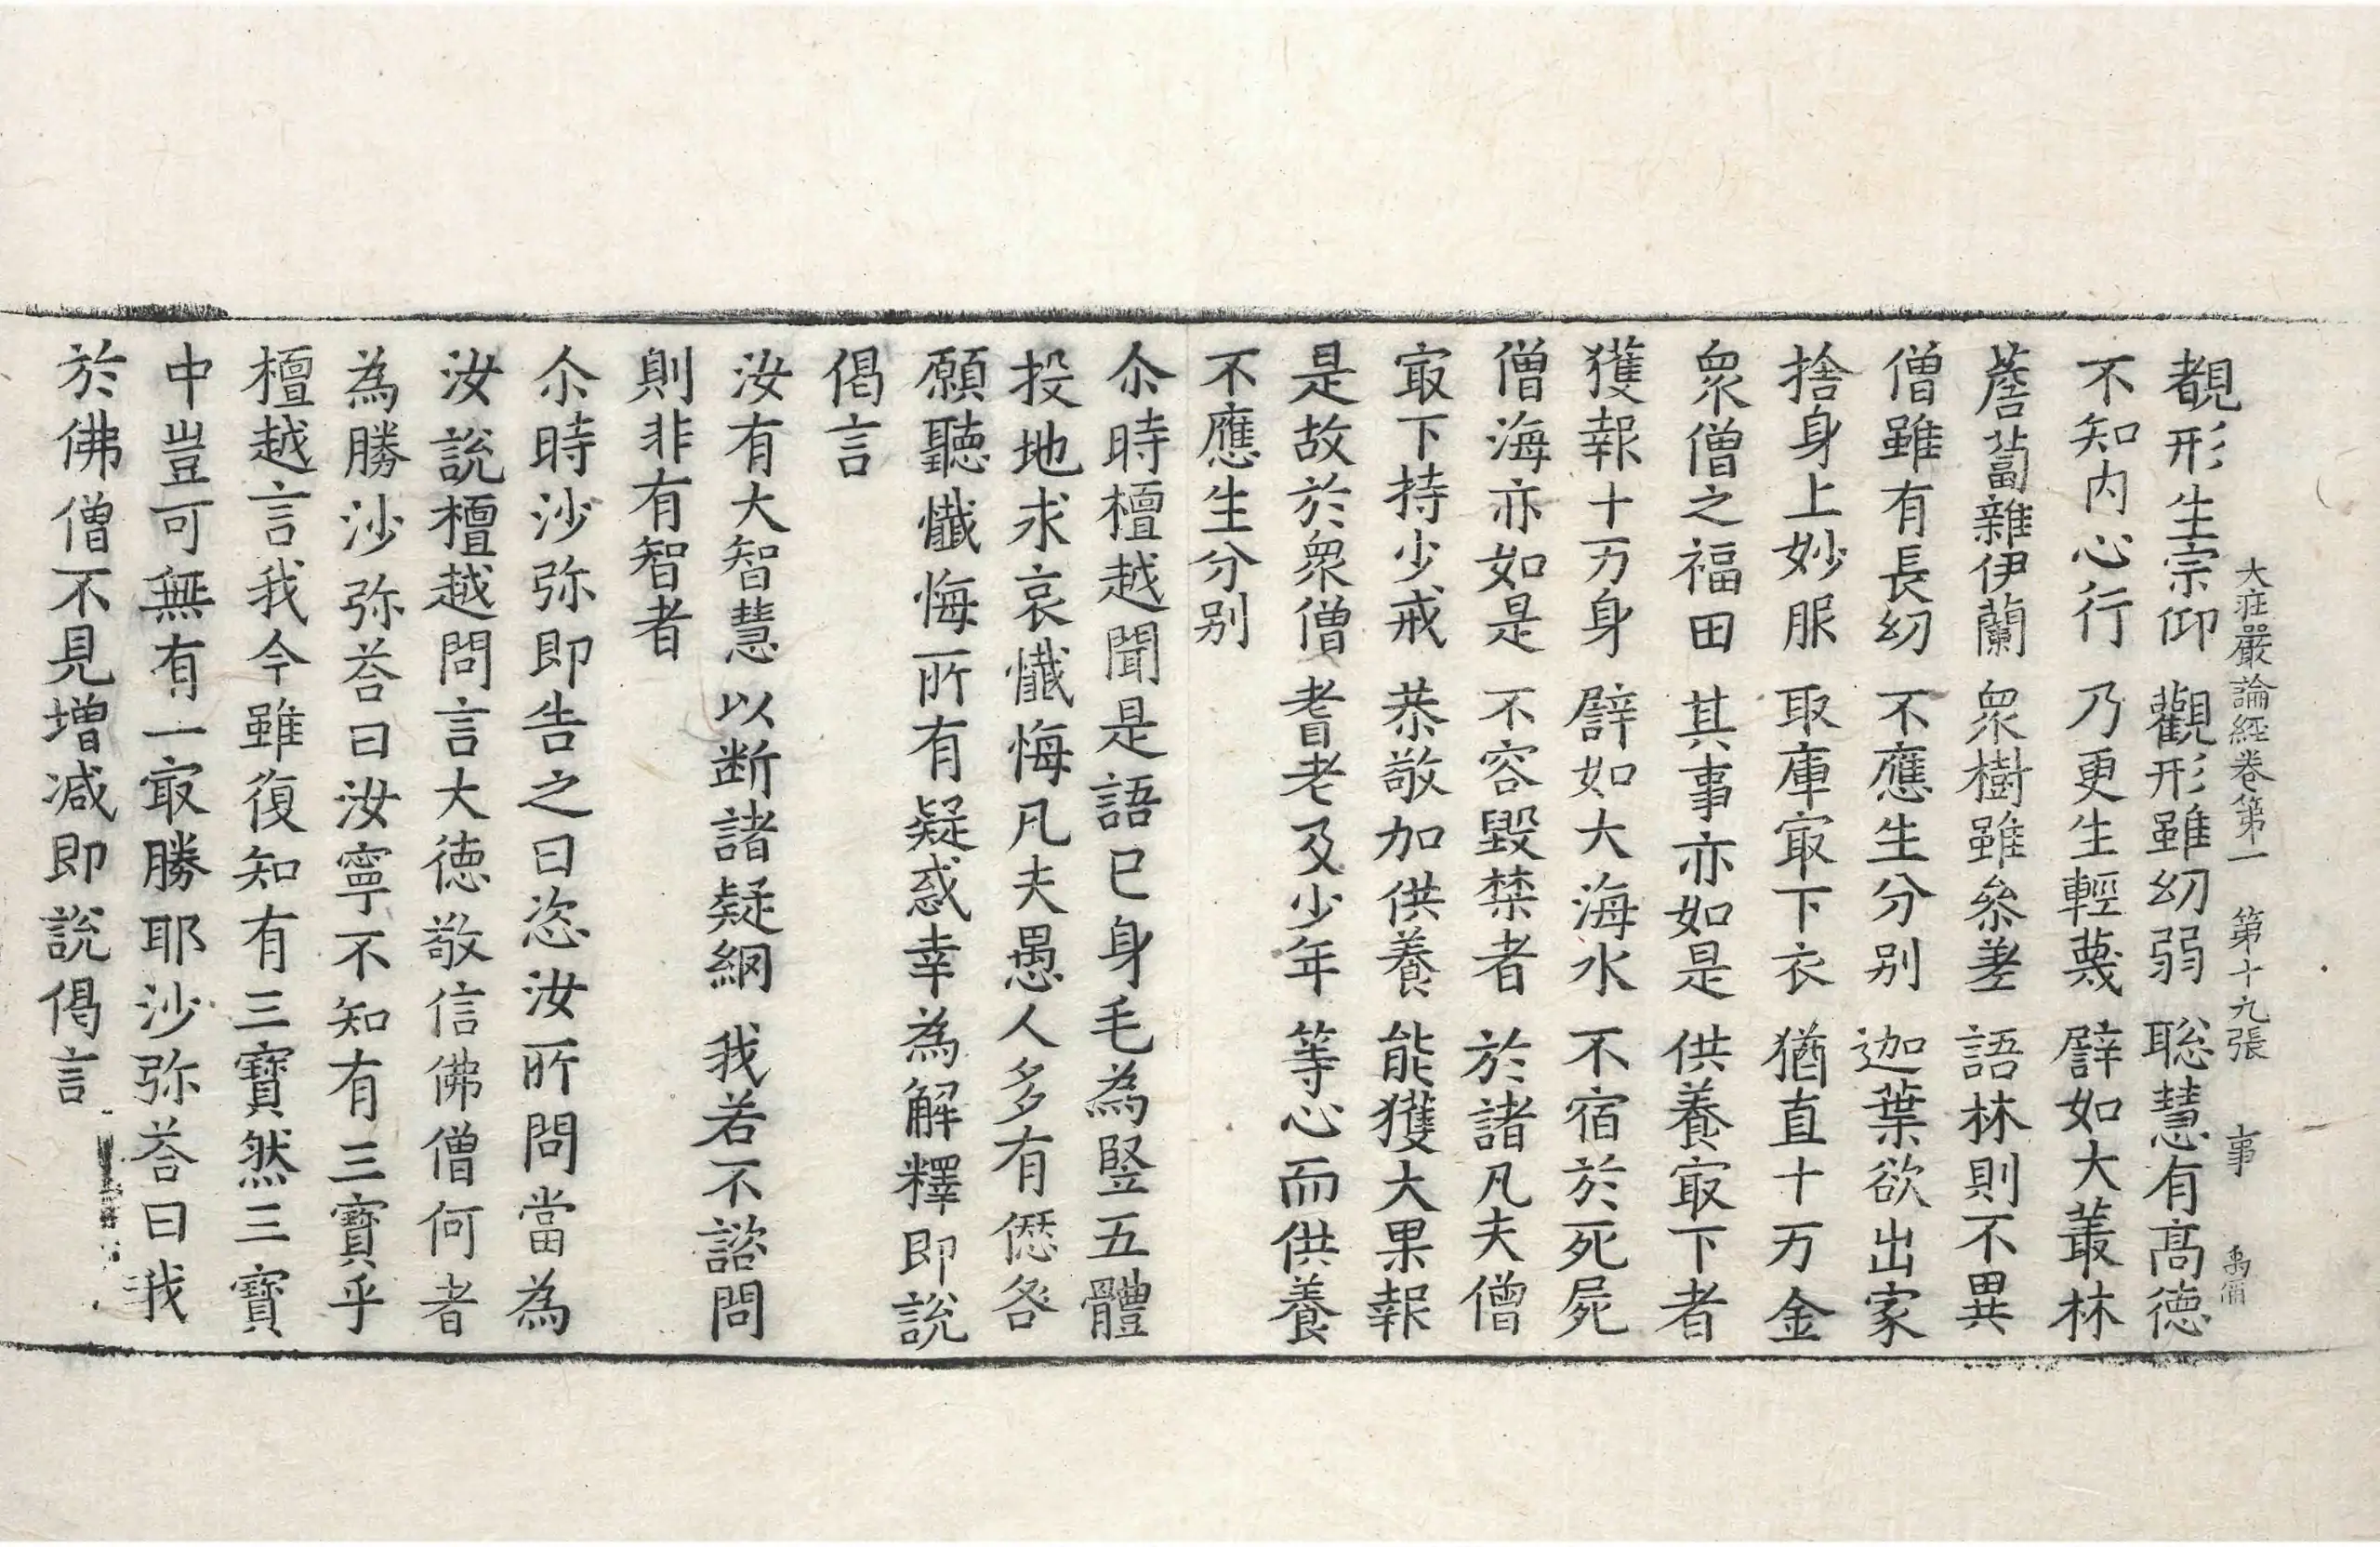 大荘嚴論經卷第一　第十九張　事　禹偁
覩形生宗仰　觀形雖幼弱　聡慧有髙徳
不知内心行　乃更生輕蔑　譬如大叢林
薝蔔雜伊蘭　衆樹雖叅差　語林則不異
僧雖有長幼　不應生分别　迦葉欲出家
捨身上妙服　取庫㝡下衣　猶直十万金
衆僧之福田　其事亦如是　供養㝡下者
獲報十万身　譬如大海水　不宿於死屍
僧海亦如是　不容毀禁者　於諸凡夫僧
㝡下持少戒　恭敬加供養　能獲大果報
是故於衆僧　耆老及少年　等心而供養
不應生分别
尒時檀越聞是語已身毛為竪五體
投地求哀懺悔凡夫愚人多有𠍴咎
願聽懺悔所有疑惑幸為解釋即說
偈言
汝有大智慧　以断諸疑網　我若不諮問
則非有智者
尒時沙弥即告之曰恣汝所問當為
汝說檀越問言大徳敬信佛僧何者
為勝沙弥荅曰汝寧不知有三寶乎
檀越言我今雖復知有三寶然三寶
中豈可無有一㝡勝耶沙弥荅曰我
於佛僧不見增减即說偈言